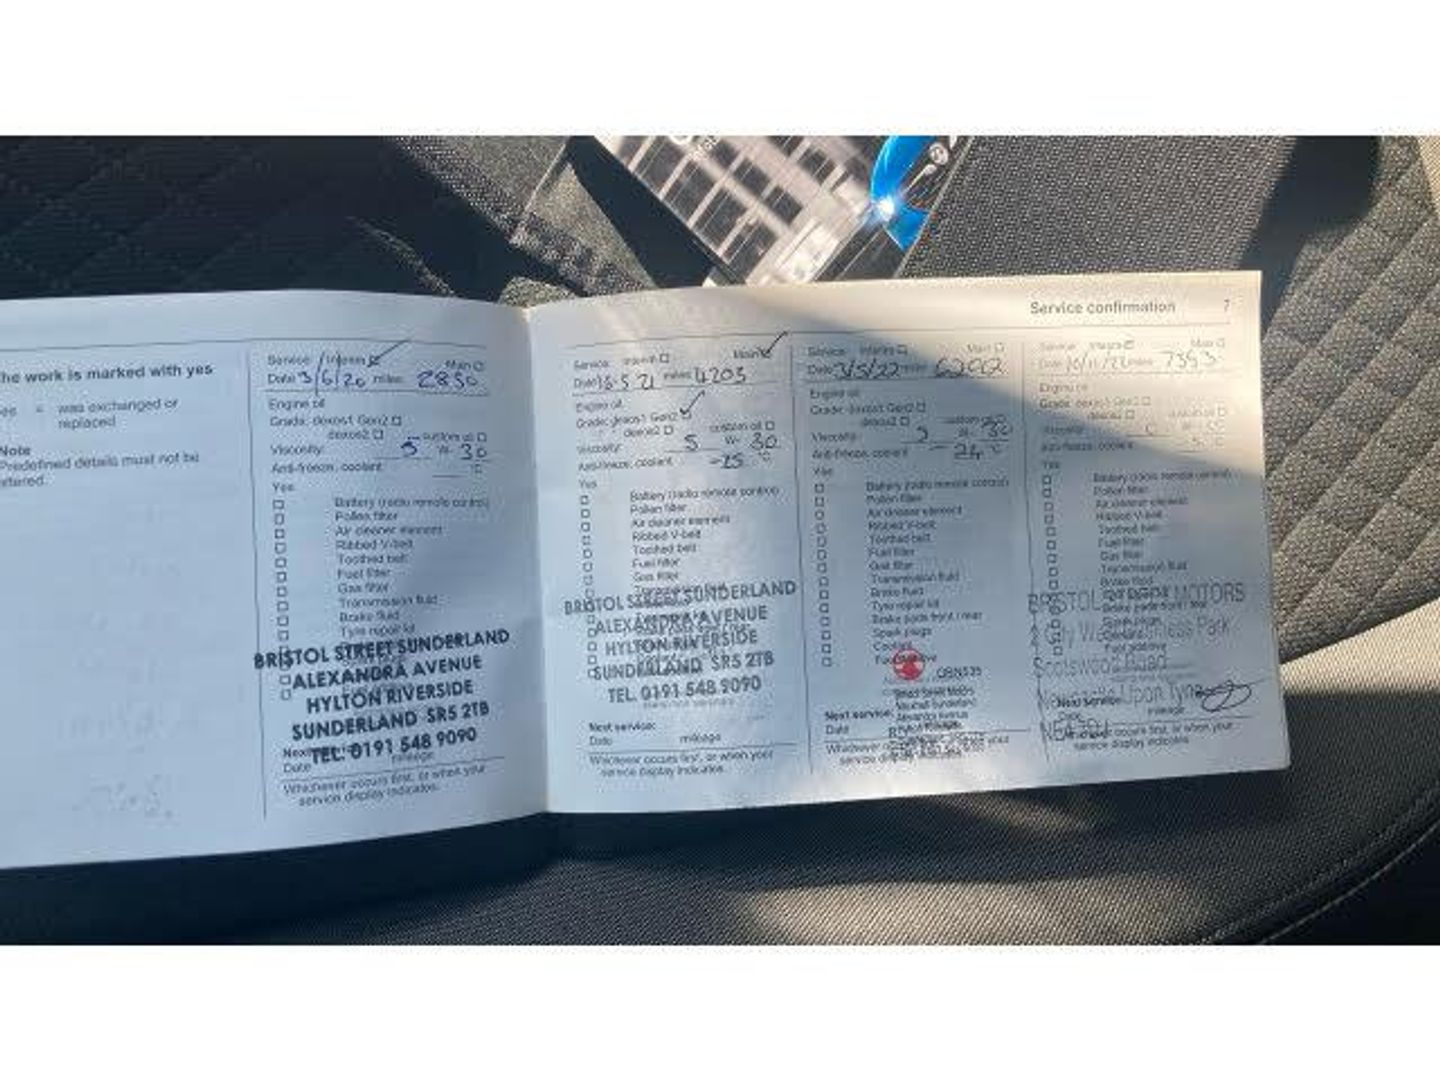 Service confirmation 7
he work is marked with yes
es = was exchanged or
replaced
Note
Predefined details must not be
ltered.
Service: Interim Main
Date 3/6/20 miles 2850
Engine oil
Grade: dexos1 Gen2
dexos2 custom oil
Viscosity: 5 W- 30
Anti-freeze, coolant °C
Yes
Battery (radio remote control)
Pollen filter
Air cleaner element
Ribbed V-belt
Toothed belt
Fuel filter
Gas filter
Transmission fluid
Brake fluid
Tyre repair kit
BRISTOL STREET SUNDERLAND
ALEXANDRA AVENUE
HYLTON RIVERSIDE
SUNDERLAND SR5 2TB
TEL. 0191 548 9090
Date mileage
Whichever occurs first, or when your
service display indicates.
Service: Interim Main
Date 5 21 miles 4203
Engine oil
Grade: dexos1 Gen2
dexos2 custom oil
Viscosity: 5 W- 30
Anti-freeze, coolant -25 °C
Yes
Battery (radio remote control)
Pollen filter
Air cleaner element
Ribbed V-belt
Toothed belt
Fuel filter
Gas filter
BRISTOL STREET SUNDERLAND
ALEXANDRA AVENUE
HYLTON RIVERSIDE
SUNDERLAND SR5 2TB
TEL. 0191 548 9090
Next service:
Date mileage
Whichever occurs first, or when your
service display indicates.
Service: Interim Main
Date 3/5/22 miles
Engine oil
Grade: dexos1 Gen2
dexos2 custom oil
Viscosity: 5 W- 30
Anti-freeze, coolant - 24 °C
Yes
Battery (radio remote control)
Pollen filter
Air cleaner element
Ribbed V-belt
Toothed belt
Fuel filter
Gas filter
Transmission fluid
Brake fluid
Tyre repair kit
Brake pads front / rear
Spark plugs
Next service:
Date
Whichever your
service display indicates.
Service: Interim Main
Date 10/11/22 miles 7393
Engine oil
Grade: dexos1 Gen2
dexos2 custom oil
Anti-freeze, coolant
Yes
Battery (radio remote control)
Pollen filter
Air cleaner element
Ribbed V-belt
Toothed belt
Fuel filter
Gas filter
Transmission fluid
Brake fluid
BRISTOL MOTORS
Scotswood Road
Newcastle Upon Tyne
Date mileage
occurs first, or when your
service display indicates.